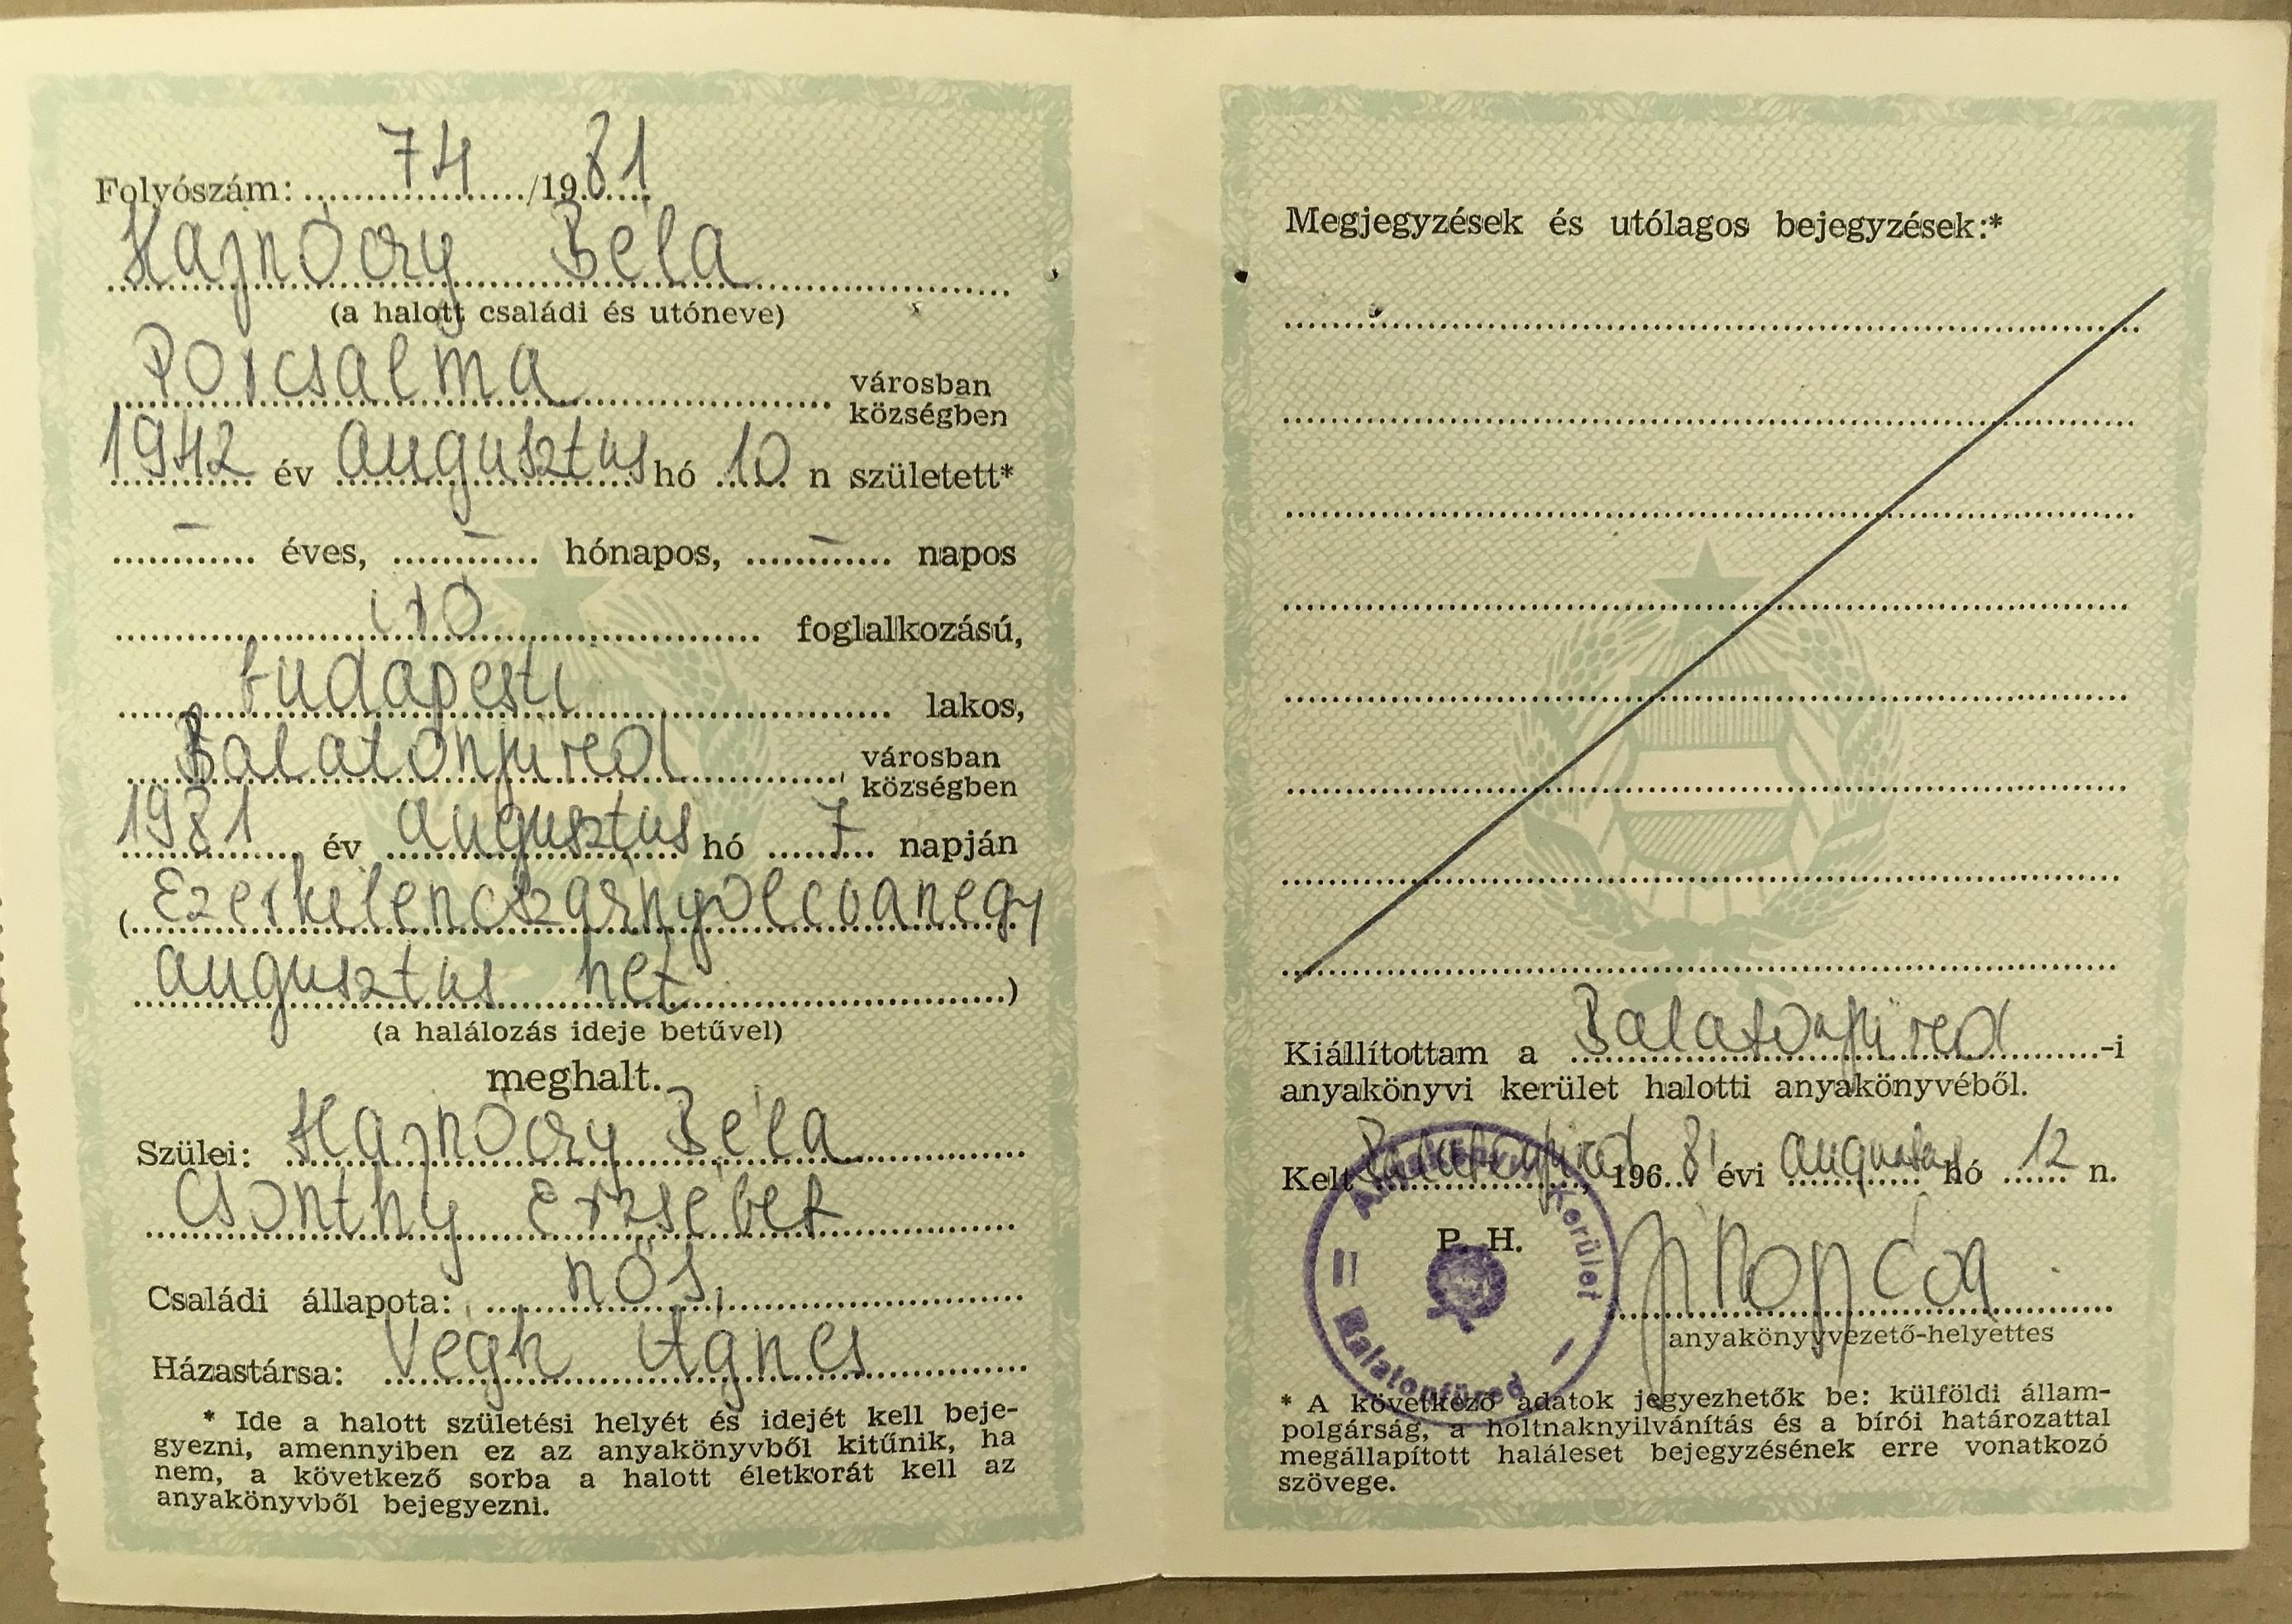 Folyószám: 74 /1981
Hajnóczy Béla
(a halott családi és utóneve)
Porcsalma városban
községben
1942 év augusztus hó 10 n született*
– éves, – hónapos, – napos
író foglalkozású,
budapesti lakos,
Balatonfüred városban
községben
1981 év augusztus hó 7 napján
(Ezerkilencszáznyolcvanegy
augusztus hét)
(a halálozás ideje betűvel)
meghalt.
Szülei: Hajnóczy Béla
Csonthy Erzsébet
Családi állapota: nős,
Házastársa: Végh Ágnes
* Ide a halott születési helyét és idejét kell beje-
gyezni, amennyiben ez az anyakönyvből kitűnik, ha
nem, a következő sorba a halott életkorát kell az
anyakönyvből bejegyezni.
Megjegyzések és utólagos bejegyzések:*
Kiállítottam a Balatonfüred -i
anyakönyvi kerület halotti anyakönyvéből.
Kelt Balatonfüred, 196 81 évi augusztus hó 12 n.
P. H.
Anyakönyvi Kerület
Balatonfüred
anyakönyvvezető-helyettes
* A következő adatok jegyezhetők be: külföldi állam-
polgárság, a holtnaknyilvánítás és a bírói határozattal
megállapított haláleset bejegyzésének erre vonatkozó
szövege.